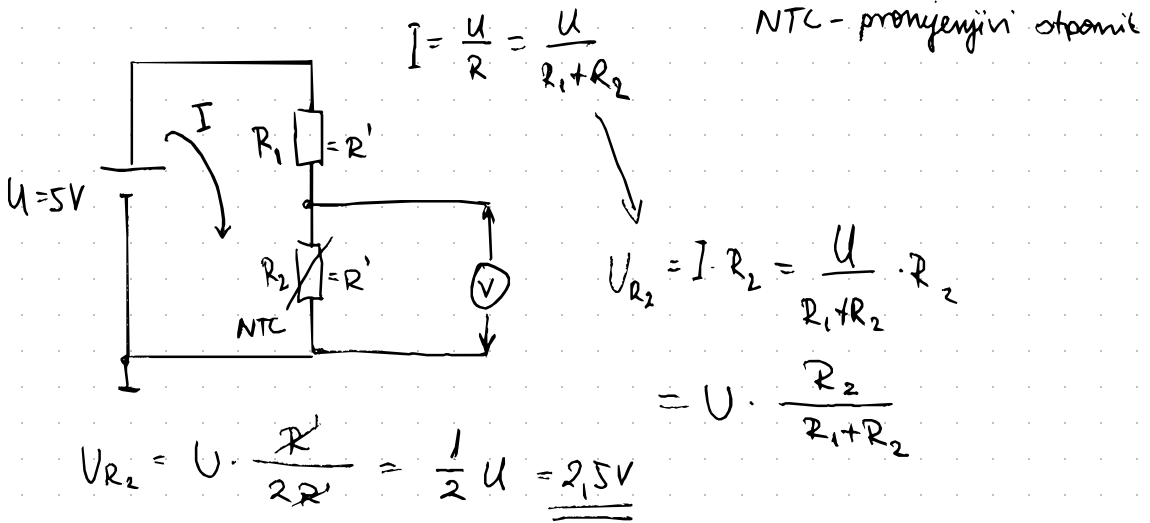 I = U/R = U/(R₁+R₂)
NTC - promjenjivi otpornik
I
R₁ = R'
U = 5V
R₂ = R'
NTC
V
U_R₂ = I · R₂ = U/(R₁+R₂) · R₂
= U · R₂/(R₁+R₂)
U_R₂ = U · R'/2R' = 1/2 U = 2,5V